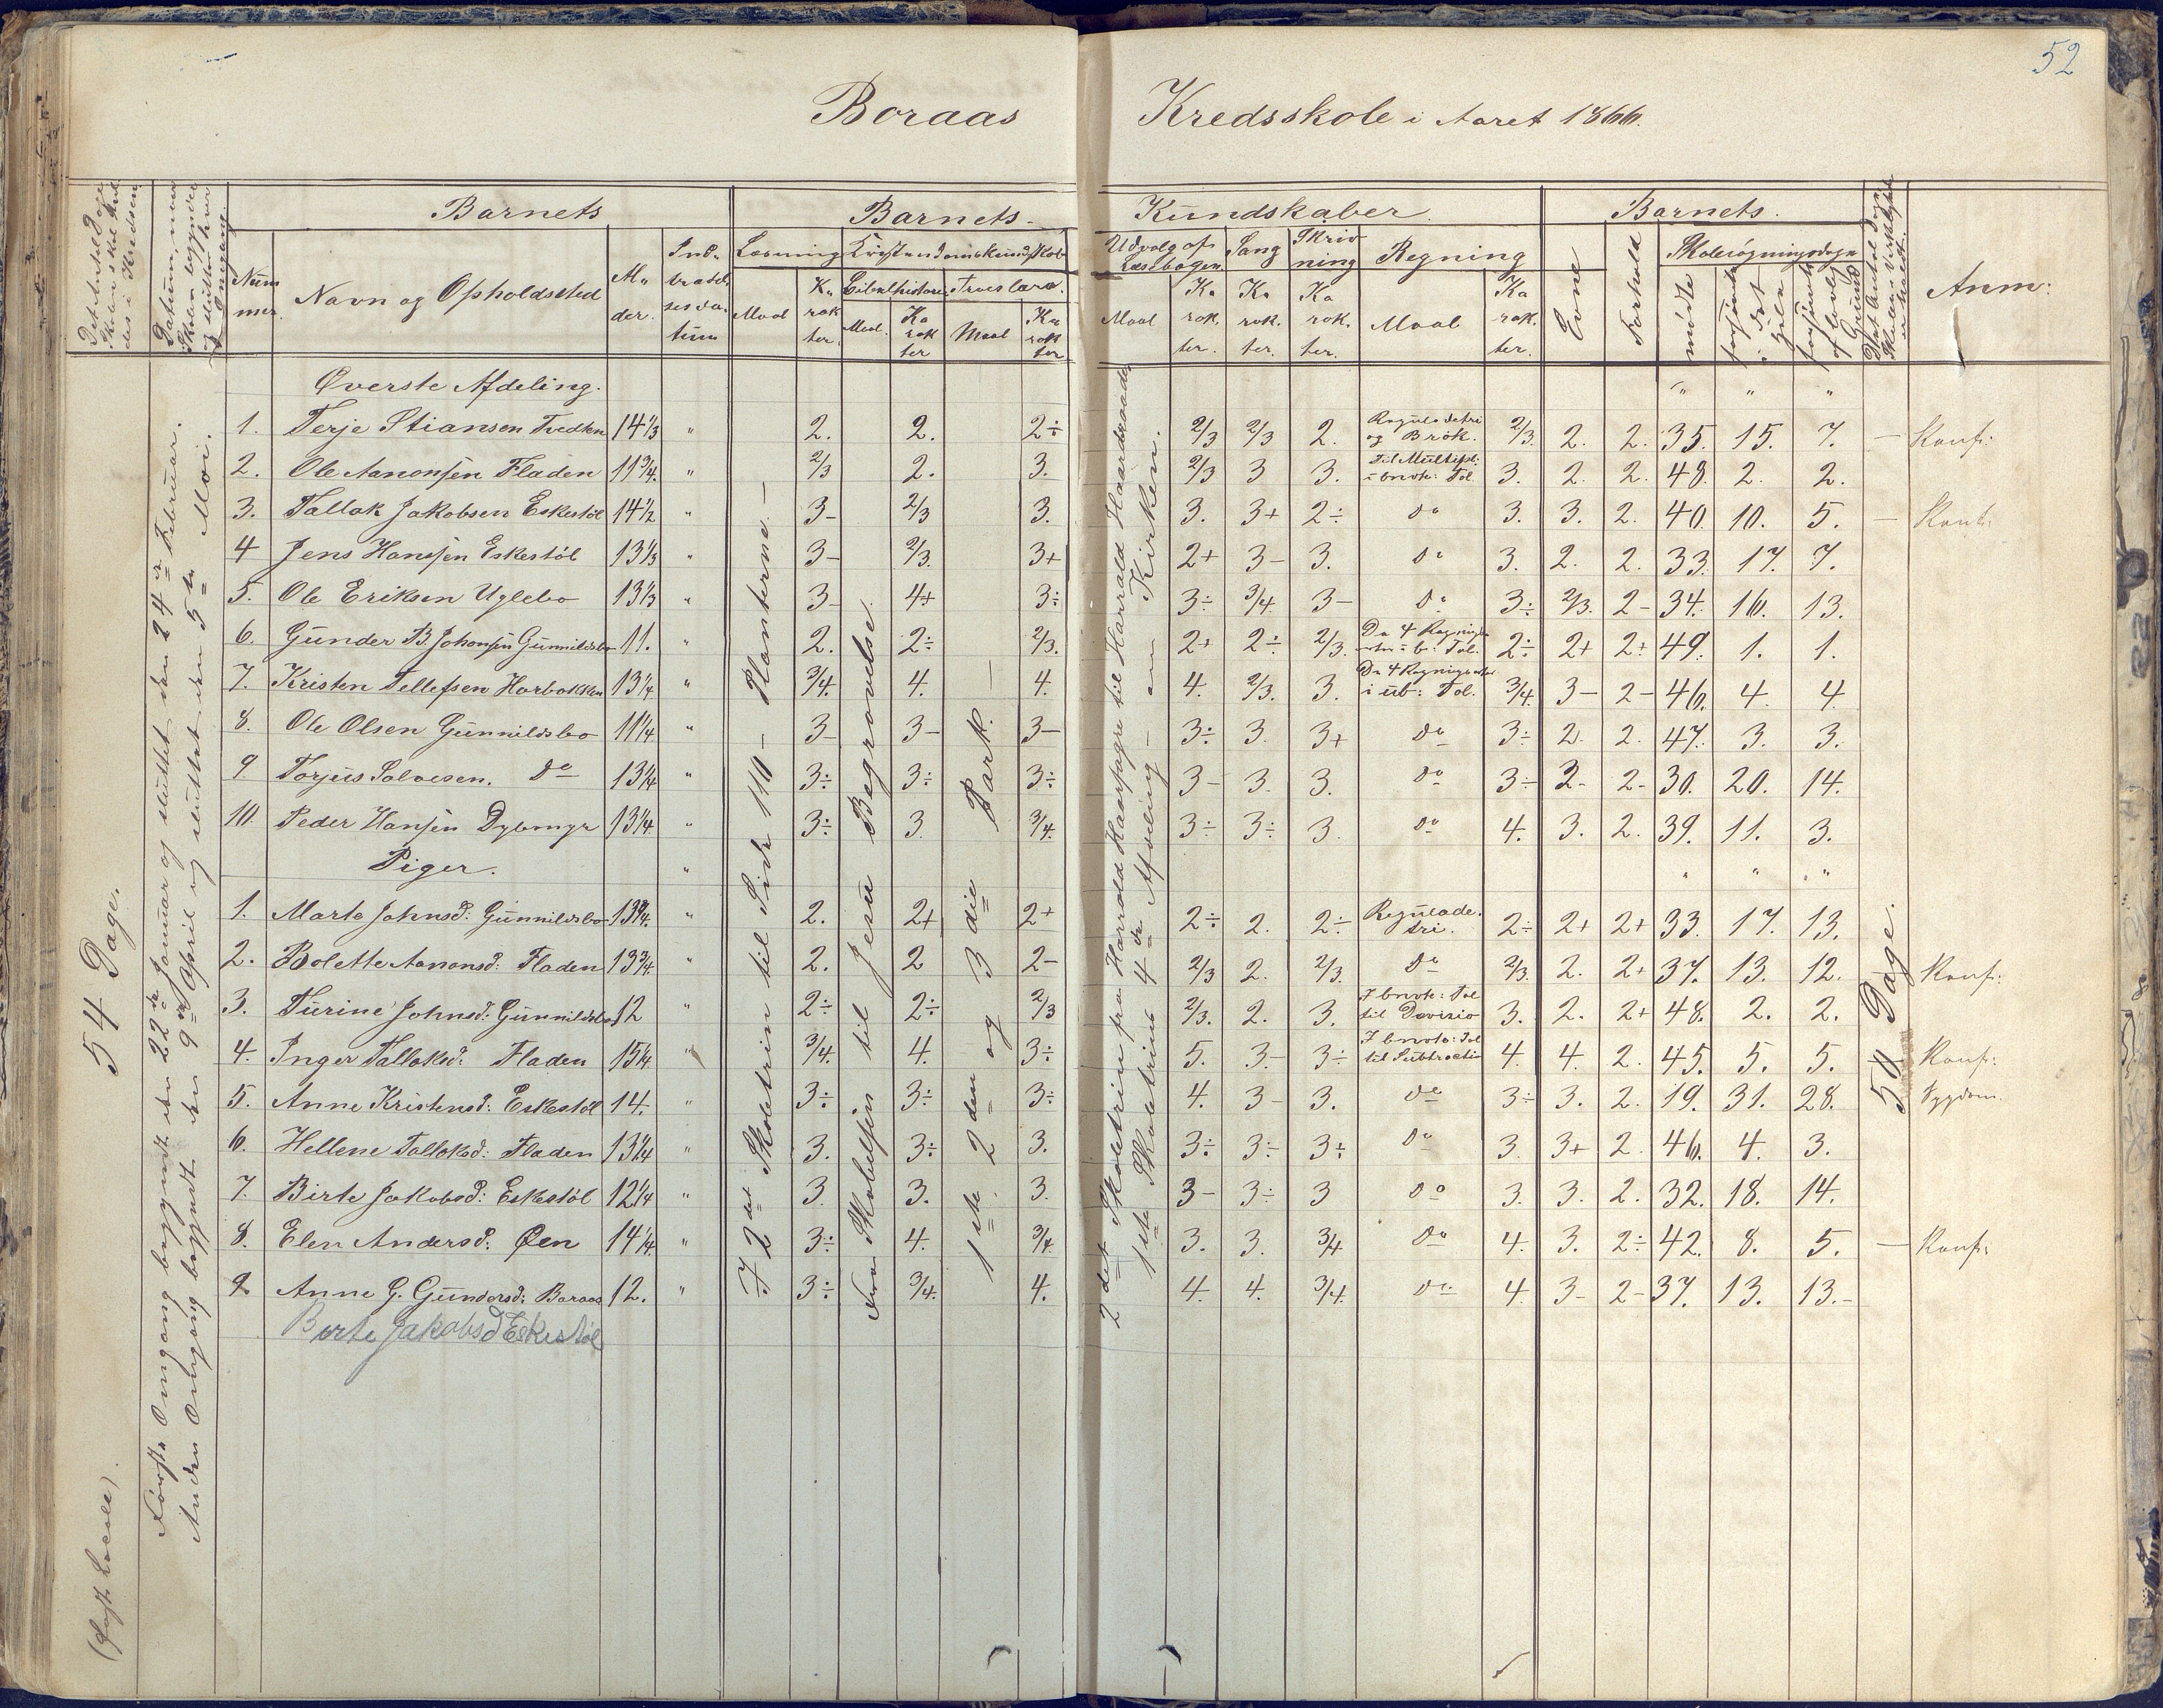 52
Boraas Kredsskole i Aaret 1866.
Det Antal Dage Skolen skal holdes i Kredsen
Datum, naar Skolen begyndte og sluttede hver Omgang.
Barnets
Barnets Kundskaber.
Barnets.
Nummer.
Navn og Opholdssted
Alder.
Indtrædelsesdatum
Læsning
Kristendomskundskab
Udvalg af Læsebogen
Sang
Skrivning
Regning
Evne
Forhold
Skolesøgningsdage
Det Antal Dage Skolen virkelig er holdt.
Anm:
Maal
Karakter.
Bibelhistorie
Troeslære.
Maal.
Karakter
Maal
Karakter
Maal
Karakter.
Karakter.
Karakter.
Maal
Karakter.
mødte
forsømte i det Hele
forsømte af lovlig Grund
54 Dage.
Første Omgang begyndt den 22de Januar og sluttet den 24de Februar.
Anden Omgang begyndt den 9de April og sluttet den 5te Mai.
I 2det Skoletrin til Side 110 – Planterne. –
Fra Skabelsen til Jesu Begravelse.
1ste, 2den og 3die Part. –
2det Skoletrin fra Harald Haarfagre til Harald Haardraade
1ste Skoletrins 4de Afdeling – om Kirken.
50 Dage.
Øverste Afdeling. " " "
1. Terje Stiansen Tvedten 14 1/3 " 2. 2. 2÷ 2/3 2/3 2. Regula detri og Brøk. 2/3. 2. 2. 35. 15. 7. – Konf:
2. Ole Aanonsen Fladen 11 3/4. " 2/3 2. 3. 2/3 3 3. Til Multipl: i benevnte: Tal 3. 2. 2. 48. 2. 2.
3. Tallak Jakobsen Eskestøl 14 1/2 " 3– 2/3 3. 3. 3+ 2÷ do 3. 3. 2. 40. 10. 5. – Konf:
4 Jens Hansen Eskestøl 13 1/3 " 3– 2/3. 3+ 2+ 3– 3. do 3. 2. 2. 33. 17. 7.
5. Ole Eriksen Uglebo 13 1/3 " 3– 4+ 3÷ 3÷ 3/4. 3– do 3÷ 2/3. 2– 34. 16. 13.
6. Gunder B. Johansen Gunnildsbo 11. " 2. 2÷ 2/3. 2+ 2÷ 2/3. De 4 Regningsarter i b: Tal. 2÷ 2+ 2+ 49. 1. 1.
7. Kristen Tellefsen Horbakken 13 1/4. " 3/4. 4. 4. 4. 2/3. 3. De 4 Regningsarter i ub: Tal. 3/4. 3– 2– 46. 4. 4
8. Ole Olsen Gunnildsbo 11 1/4 " 3– 3– 3– 3÷ 3. 3+ do 3÷ 2. 2. 47. 3. 3.
9. Torjus Salvesen. do 13 1/4 " 3÷ 3÷ 3÷ 3– 3. 3. do 3÷ 3– 2– 30. 20. 14.
10. Peder Hansen Dybmyr 13 1/4. " 3÷ 3. 3/4. 3÷ 3÷ 3. do 4. 3. 2. 39. 11. 3.
Piger. " " " "
1. Marte Johnsd: Gunnildsbo 13 3/4. " 2. 2+ 2+ 2÷ 2. 2÷ Regulade tri. 2÷ 2+ 2+ 33. 17. 13.
2. Bolette Aanonsd: Fladen 13 3/4. " 2. 2 2– 2/3 2. 2/3. do 2/3. 2. 2+ 37. 13. 12. Konf:
3. Turine Johnsd: Gunnildsbo 12 " 2÷ 2÷ 2/3 2/3. 2. 3. I benvnte: Tal til Divisio 3. 2. 2+ 48. 2. 2.
4. Inger Tallaksd: Fladen 15 1/4. " 3/4. 4. 3÷ 5. 3– 3÷ I bnvnte: Tal til Subtractio 4. 4. 2. 45. 5. 5. Konf:
5. Anne Kristensd: Eskestøl 14. " 3÷ 3÷ 3÷ 4. 3– 3. do 3÷ 3. 2. 19. 31. 28. Sygdom.
6. Hellene Tallaksd: Fladen 13 1/4 " 3. 3÷ 3. 3÷ 3÷ 3÷ do 3. 3+ 2. 46. 4. 3.
7. Birte Jakobsd: Eskestøl 12 1/4 " 3. 3. 3. 3– 3÷ 3 do 3. 3. 2. 32. 18. 14.
8. Elen Andersd: Øen 14 1/4. " 3÷ 4. 3/4. 3. 3. 3/4 do 4. 3. 2÷ 42. 8. 5. – Konf:
9. Anne G. Gundersd: Boraas 12. " 3÷ 3/4. 4. 4. 4. 3/4. do 4. 3– 2– 37. 13. 13.–
Berte Jakobsd Eskestøl